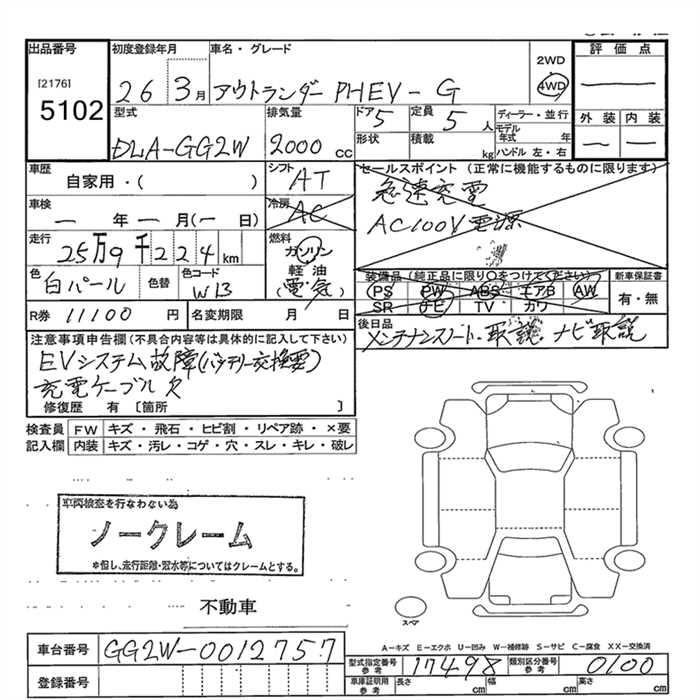 出品番号 初度登録年月 車名・グレード 2WD 評価点
[2176] 26 3月 アウトランダー PHEV-G 4WD
5102 外装 内装
型式 排気量 ドア 定員 ディーラー・並行
DLA-GG2W 2000cc 5 5人 モデル年式 年
形状 積載 kg ハンドル 左・右
車歴 シフト セールスポイント (正常に機能するものに限ります)
自家用・( ) AT 急速充電
車検 冷房 AC100V電源
一年一月(一日) AC
走行 燃料
25万9千224km ガソリン
色 色替 色コード 軽油
白パール W13 (電・気)
装備品 (純正品に限り○をつけてください) 新車保証書
PS PW ABS エアB AW 有・無
SR ナビ TV カワ
R券 11100円 名変期限 月 日
後日品 メンテナンスノート・取説・ナビ取説
注意事項申告欄(不具合内容等は具体的に記入して下さい)
EVシステム故障(バッテリー交換要)
充電ケーブル欠
修復歴 有 [箇所 ]
検査員 FW キズ・飛石・ヒビ割・リペア跡・×要
記入欄 内装 キズ・汚レ・コゲ・穴・スレ・キレ・破レ
車両検査を行なわない為
ノークレーム
*但し、走行距離・冠水等についてはクレームとする。
不動車
スペア
A-キズ E-エクボ U-凹み W-補修跡 S-サビ C-腐食 XX-交換済
車台番号 GG2W-0012757
型式指定番号 参考 17498 類別区分番号 参考 0100
登録番号 車庫証明用 参考 長さ cm 幅 cm 高さ cm